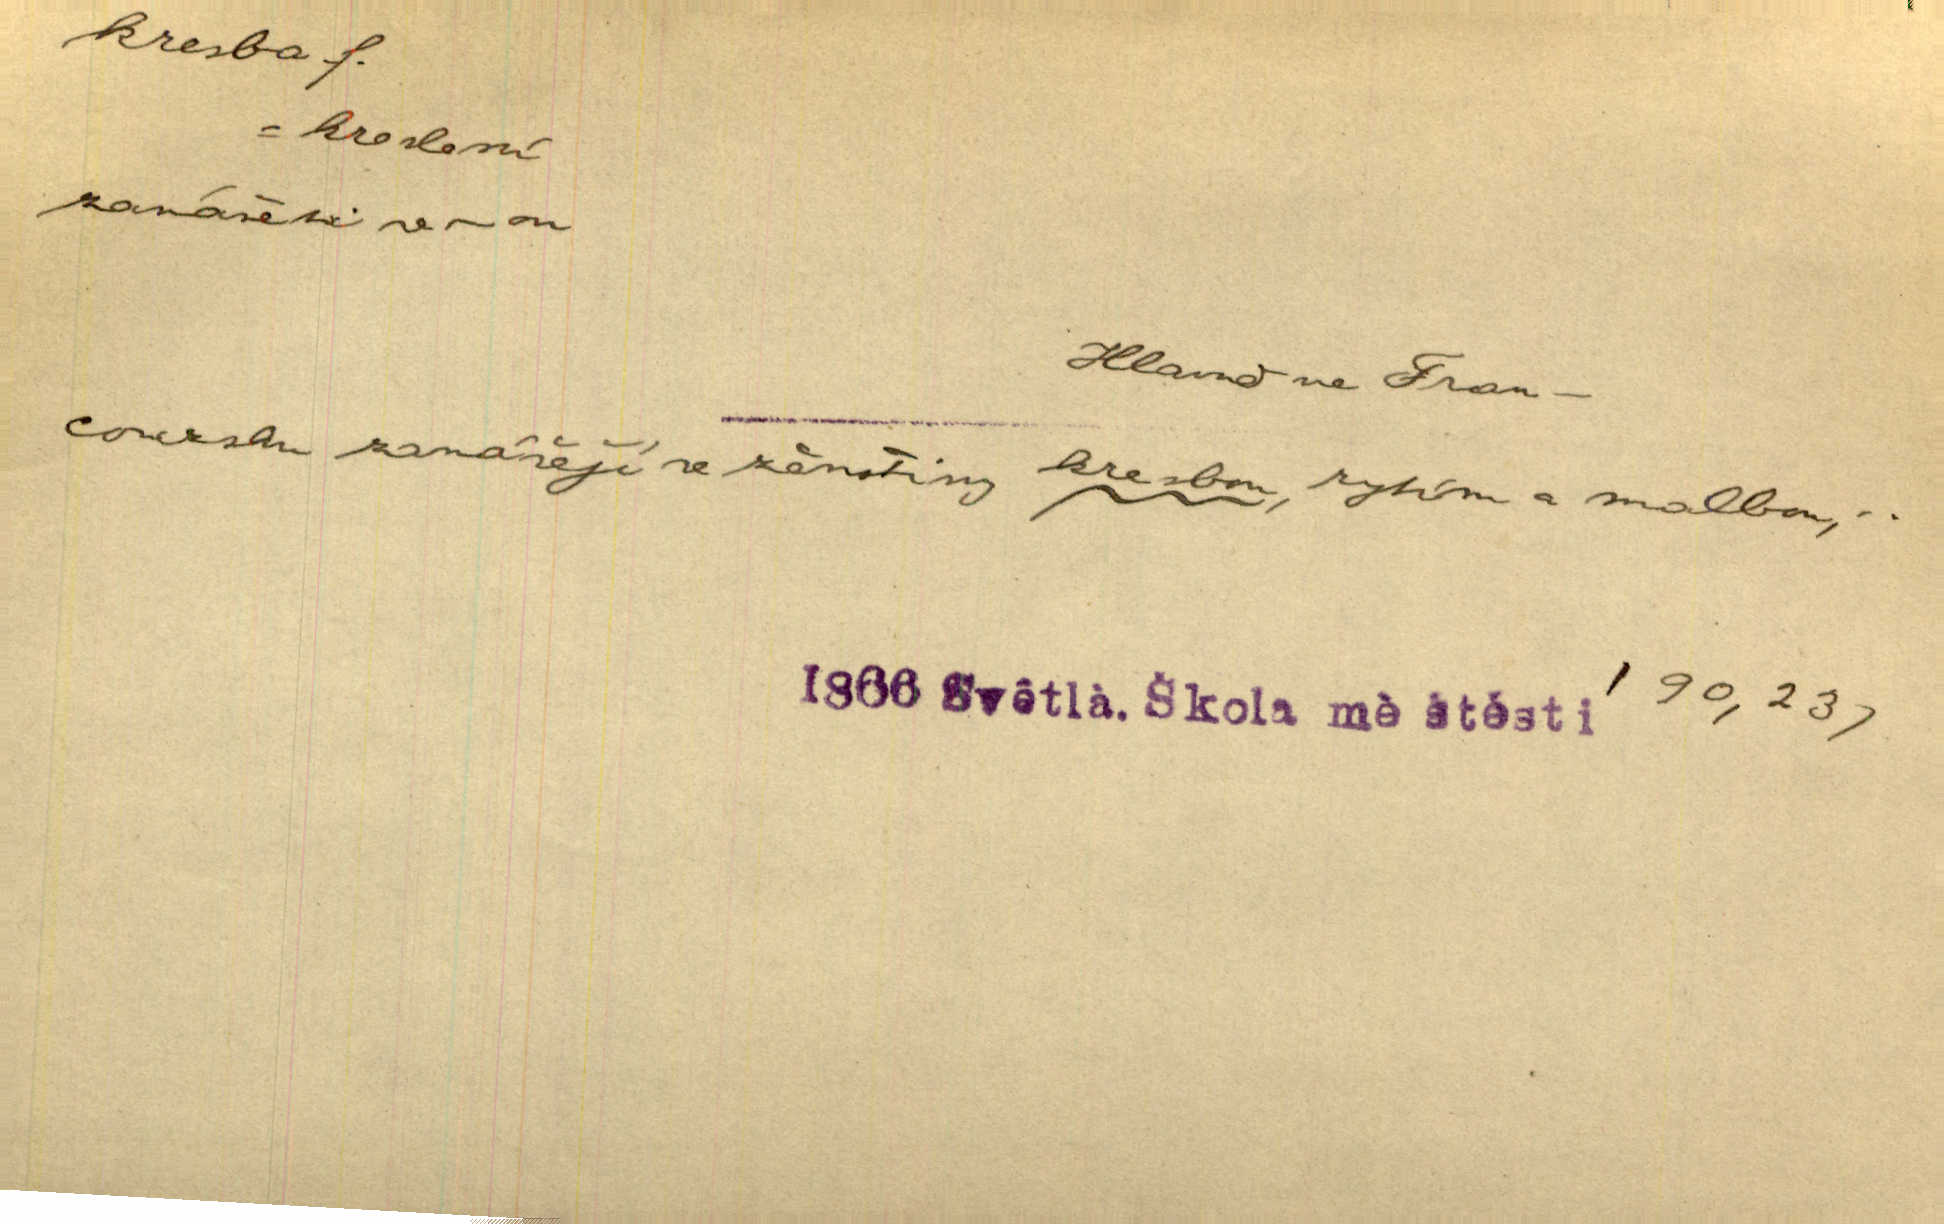 kresba f.
= kreslení
zanášeti se ~ ou
Hlavně ve Fran-
couzsku zanášejí se ženštiny kresbou, rytím a malbou, ..
1866 Světlá. Škola mé štěstí 90, 237